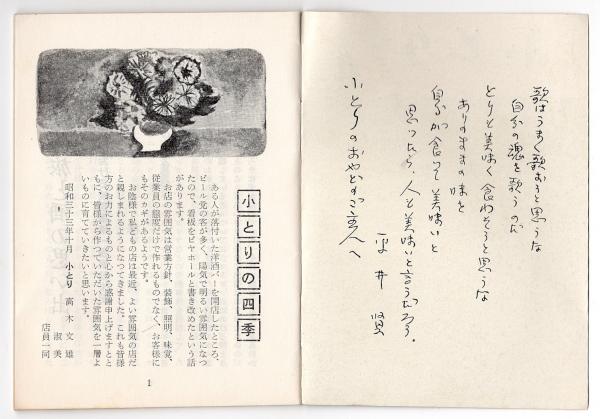 歌はうまく歌おうと思うな
自分の魂を歌うのだ
とりを美味く食わそうと思うな
ありのままの味を
自分が食って美味いと
思ったら、人も美味いと言うだろう。
平井 賢
小とりのおやどの主人へ
小とりの四季
ある人が落付いた洋酒バーを開店したところ、
ビール党の客が多く、陽気で明るい雰囲気になつ
たので、看板をビヤホールと書き改めたという話
があります。
お店の雰囲気は営業方針、装飾、照明、味覚、
従業員の態度だけで作れるものでなく、お客様に
もそのカギがあるようです。
お陰様で私どもの店は最近、よい雰囲気の店だ
と親しまれるようになつてきました。これも皆様
方のお力によるものと心から感謝申上げますとと
もに、皆様から作つていただいた雰囲気を一層よ
いものに育てていきたいと思います。
昭和三十三年十月 小とり 高木 文雄
淑美
店員一同
1